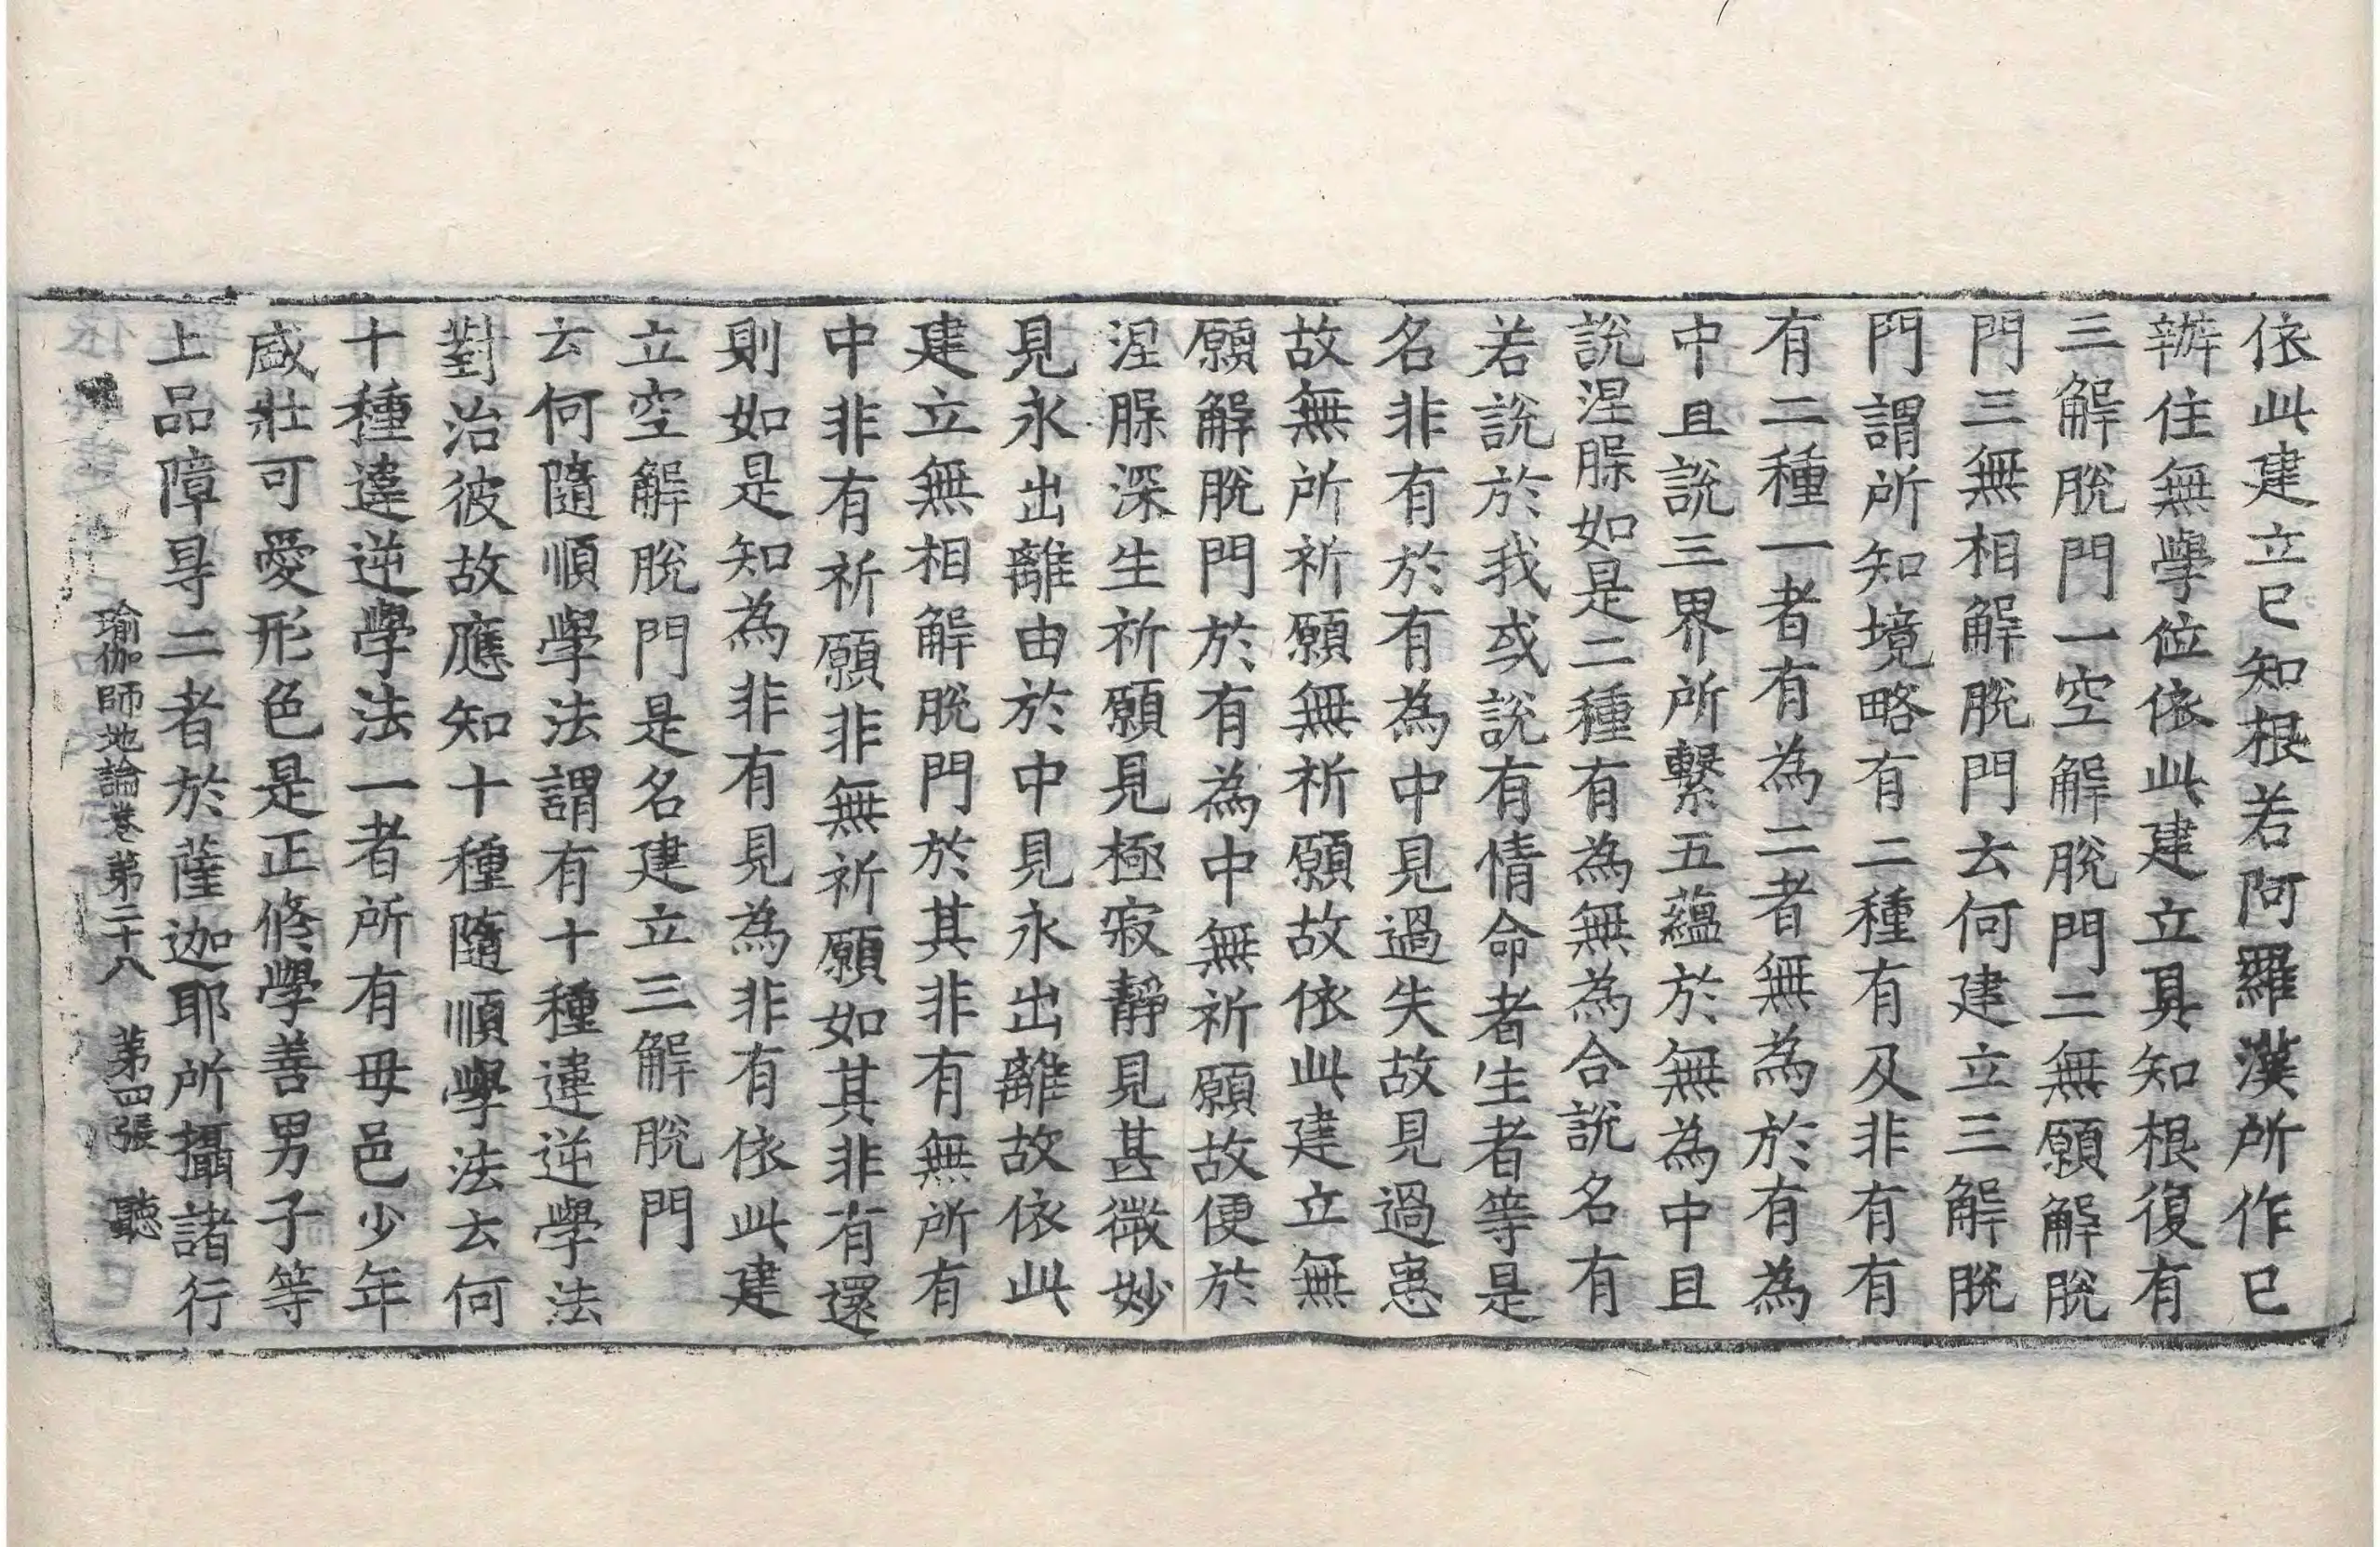 依此建立已知根若阿羅漢所作已
辦住無學位依此建立具知根復有
三解脫門一空解脫門二無願解脫
門三無相解脫門云何建立三解脫
門謂所知境略有二種有及非有有
有二種一者有為二者無為於有為
中且說三界所繫五蘊於無為中且
說涅槃如是二種有為無為合說名有
若說於我或說有情命者生者等是
名非有於有為中見過失故見過患
故無所祈願無祈願故依此建立無
願解脫門於有為中無祈願故便於
涅槃深生祈願見極寂靜見甚微妙
見永出離由於中見永出離故依此
建立無相解脫門於其非有無所有
中非有祈願非無祈願如其非有還
則如是知為非有見為非有依此建
立空解脫門是名建立三解脫門
云何隨順學法謂有十種違逆學法
對治彼故應知十種隨順學法云何
十種違逆學法一者所有母邑少年
盛壯可愛形色是正修學善男子等
上品障㝵二者於薩迦耶所攝諸行
瑜伽師地論卷第二十八　第四張　聽